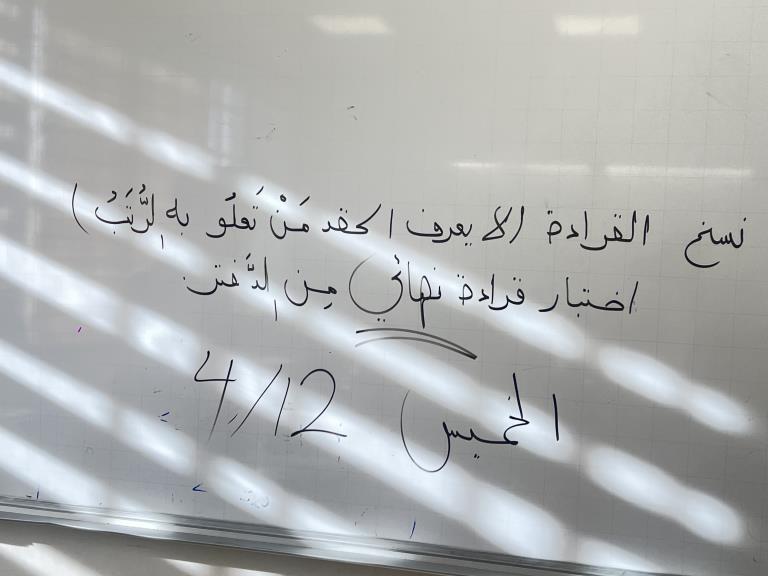 نسخ القراءة (لا يعرف الحقد مَنْ تَعلُو به الرُّتَبُ)
اختبار قراءة نهائي مِن الدَّفتر.
الخميس 4/12